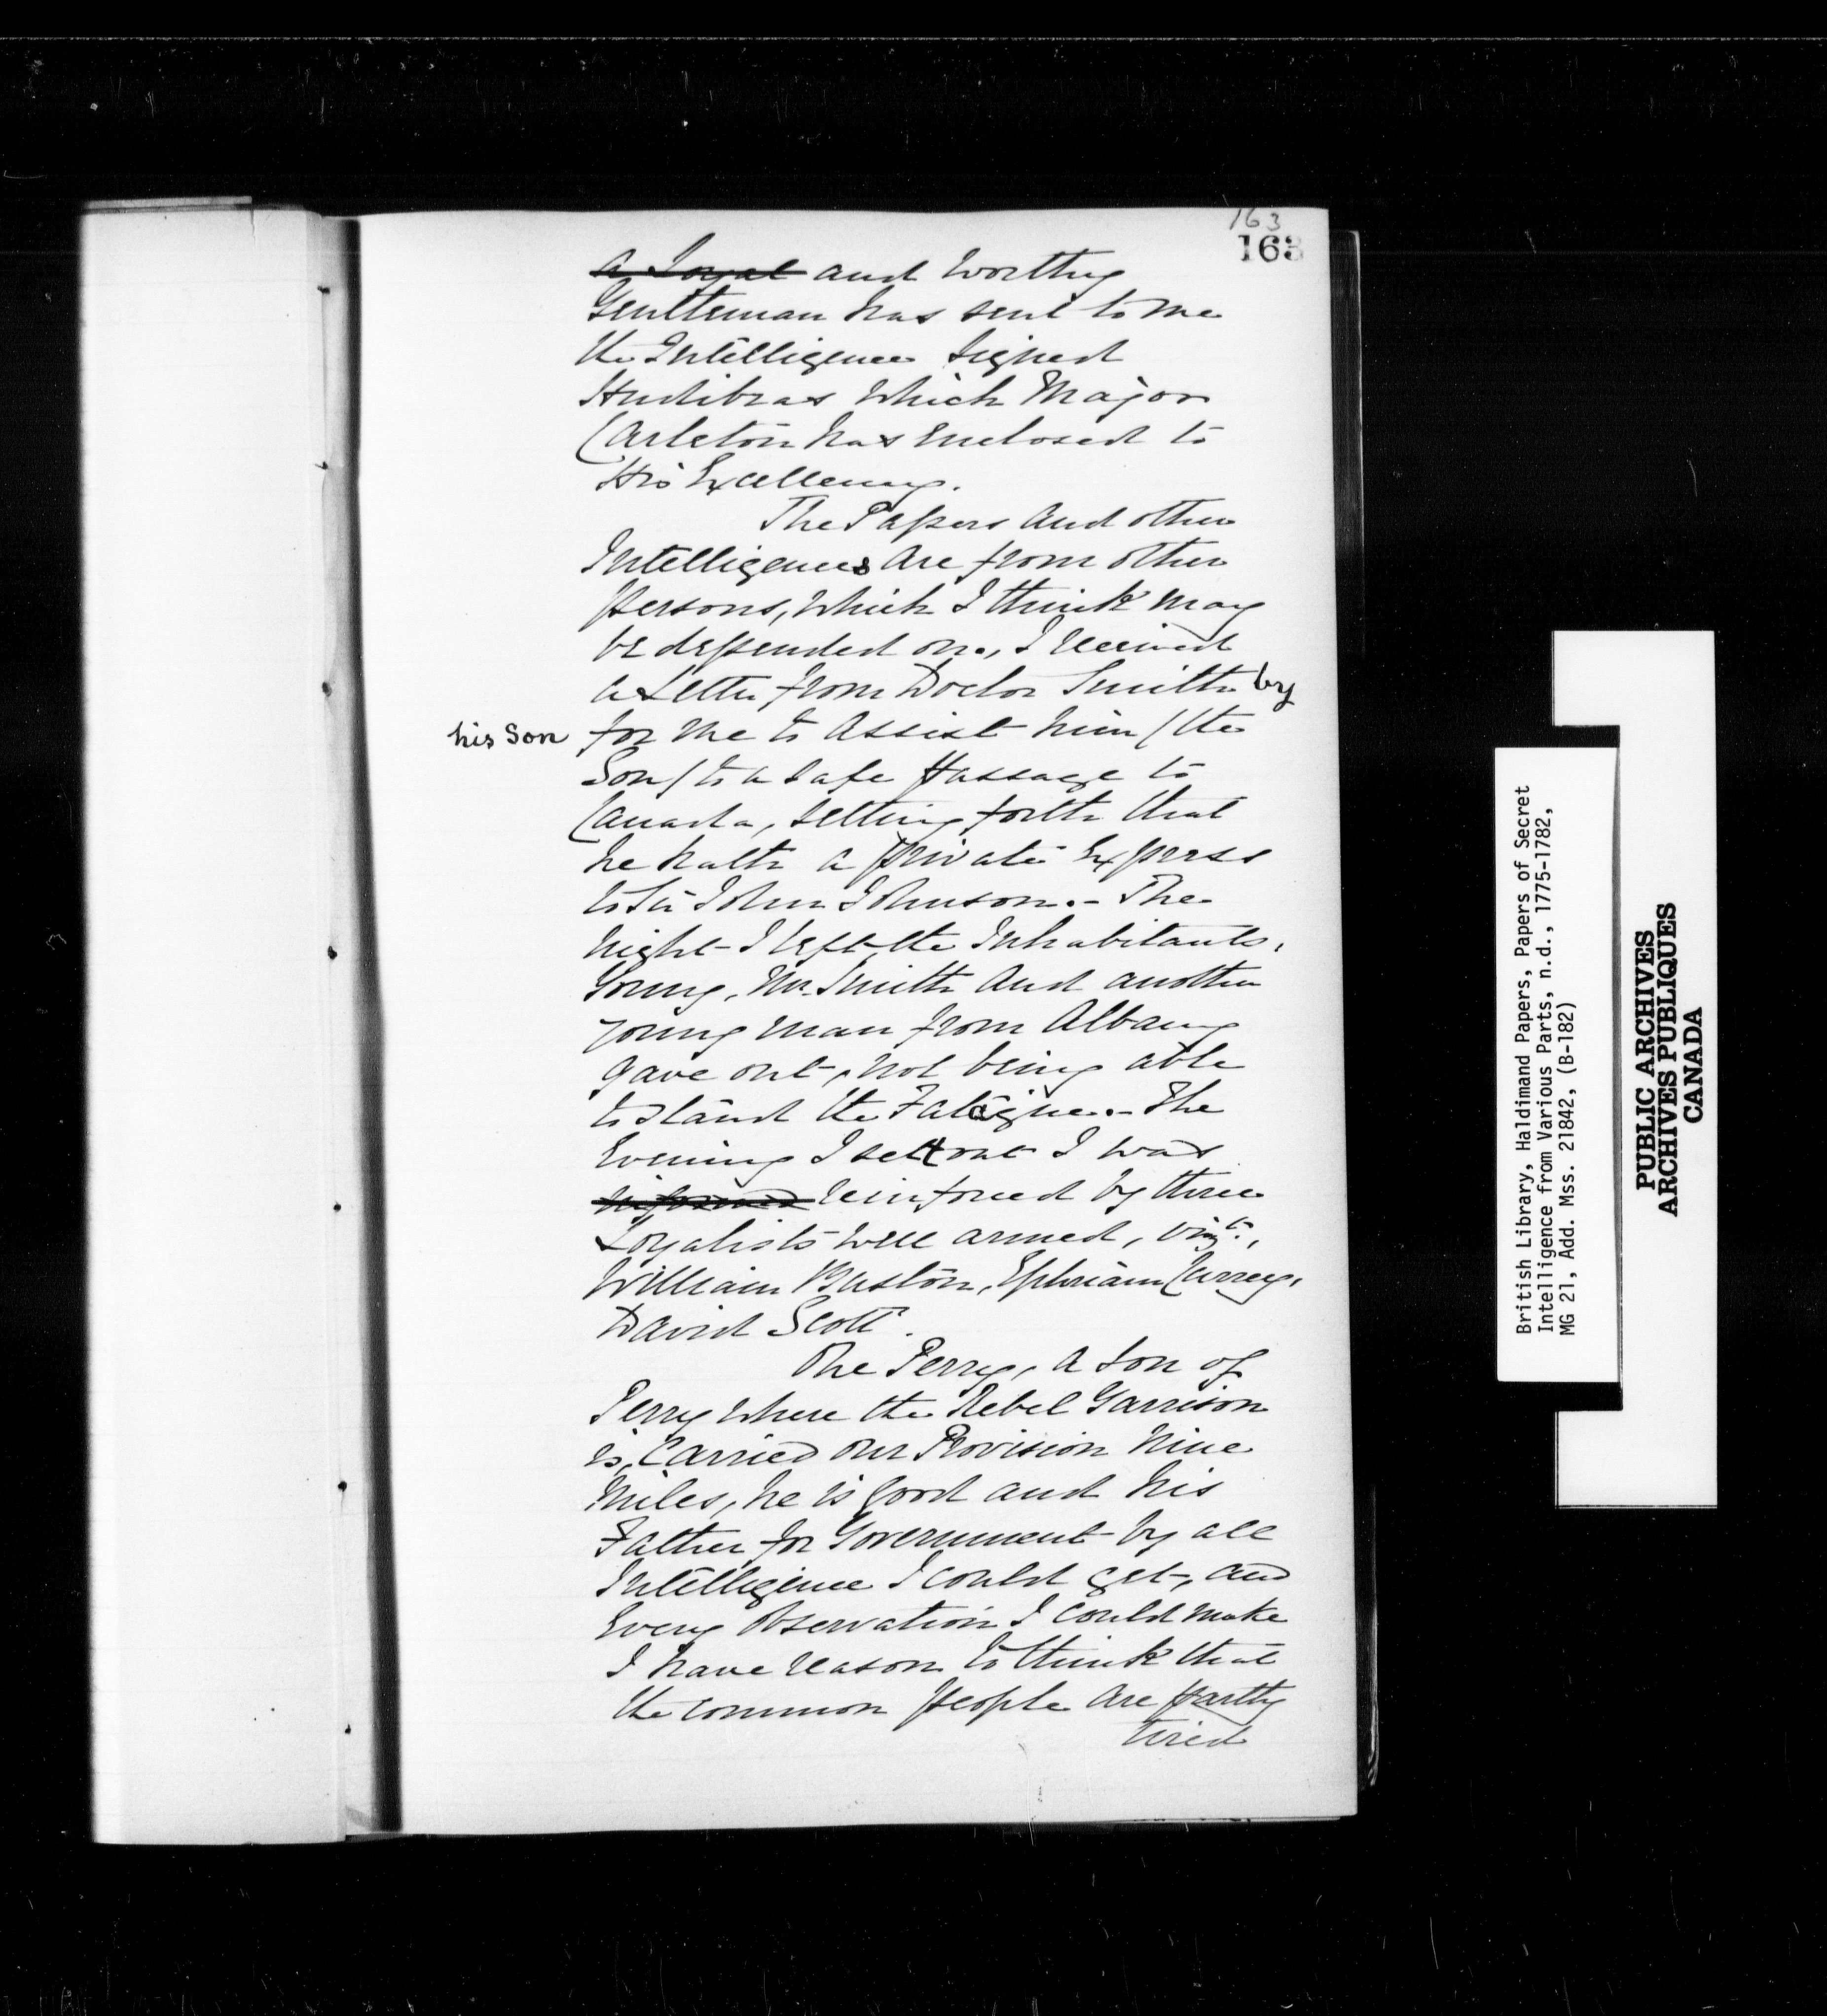 163
163
a Loyal and Worthy
Gentleman has sent to me
the Intelligence Signed
Hudibras which Major
Carleton has enclosed to
His Excellency.
The Papers and other
Intelligences are from other
persons, which I think may
be depended on., I received
a Letter from Doctor Smith by
his Son for me to Assist him / the
Son / to a safe Passage to
Canada, setting forth that
he hath a private Express
to Sir John Johnson. - The
night I left the Inhabitants,
Young, Mr. Smith and another
young man from Albany
gave out, not being able
to stand the Fatigue. - The
Evening I sett out I was
reinforced by three
Loyalists well armed, vizt.,
William Buston, Ephriam Currey,
David Scott.
One Perry, a son of
Perry where the Rebel Garrison
is, Carried our Provision nine
miles, he is good and his
Father for Government by all
Intelligence I could get, and
Every Observation I could make
I have reason to think that
the common People are partly
tired
British Library, Haldimand Papers, Papers of Secret
Intelligence from Various Parts, n.d., 1775-1782,
MG 21, Add. Mss. 21842, (B-182)
PUBLIC ARCHIVES
ARCHIVES PUBLIQUES
CANADA